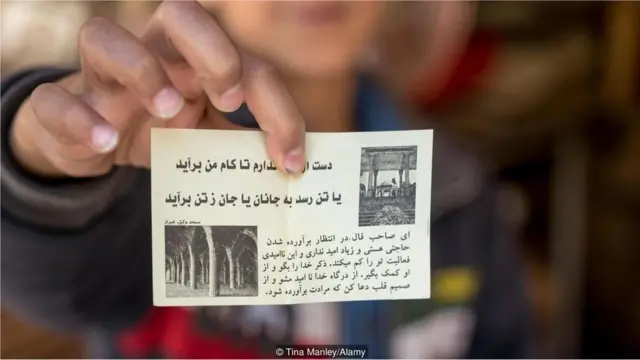 دست از ندارم تا کام من برآید
یا تن رسد به جانان یا جان ز تن برآید
مسجد وکیل، شیراز
ای صاحب فال: در انتظار برآورده شدن
حاجتی هستی و زیاد امید نداری و این ناامیدی
فعالیت تو را کم میکند. ذکر خدا را بگو و از
او کمک بگیر. از درگاه خدا نا امید مشو و از
صمیم قلب دعا کن که مرادت برآورده شود.
© Tina Manley/Alamy